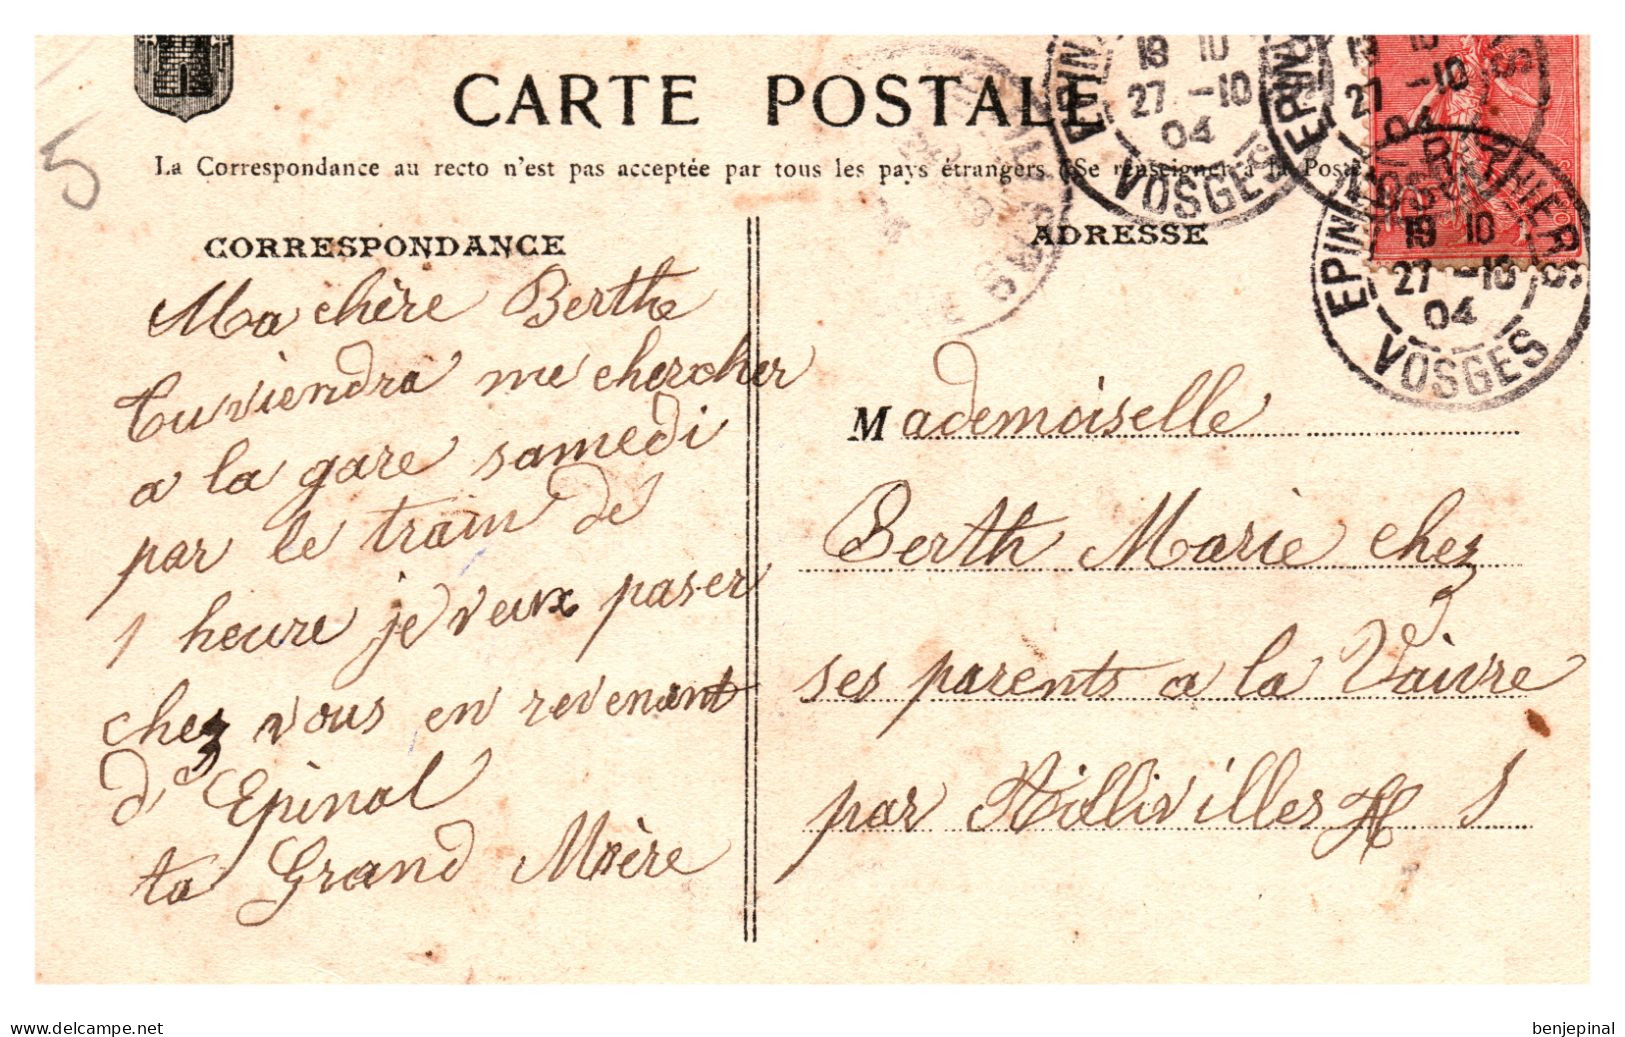 5
CARTE POSTALE
La Correspondance au recto n'est pas acceptée par tous les pays étrangers (Se renseigner à la Poste
CORRESPONDANCE
Ma chère Berthe
Tu viendra me chercher
a la gare samedi
par le train de
1 heure je veux paser
chez vous en revenant
d'Epinal
ta Grand Mère
ADRESSE
Mademoiselle
Berth Marie chez
ses parents a la Vaivre
par Aillivillers H S
EPINAL
19 10
27 -10
04
VOSGES
EPINAL
19 10
27 -10
04
VOSGES
EPINAL R. THIERS
19 10
27 -10
04
VOSGES
delcampe.net
benjepinal